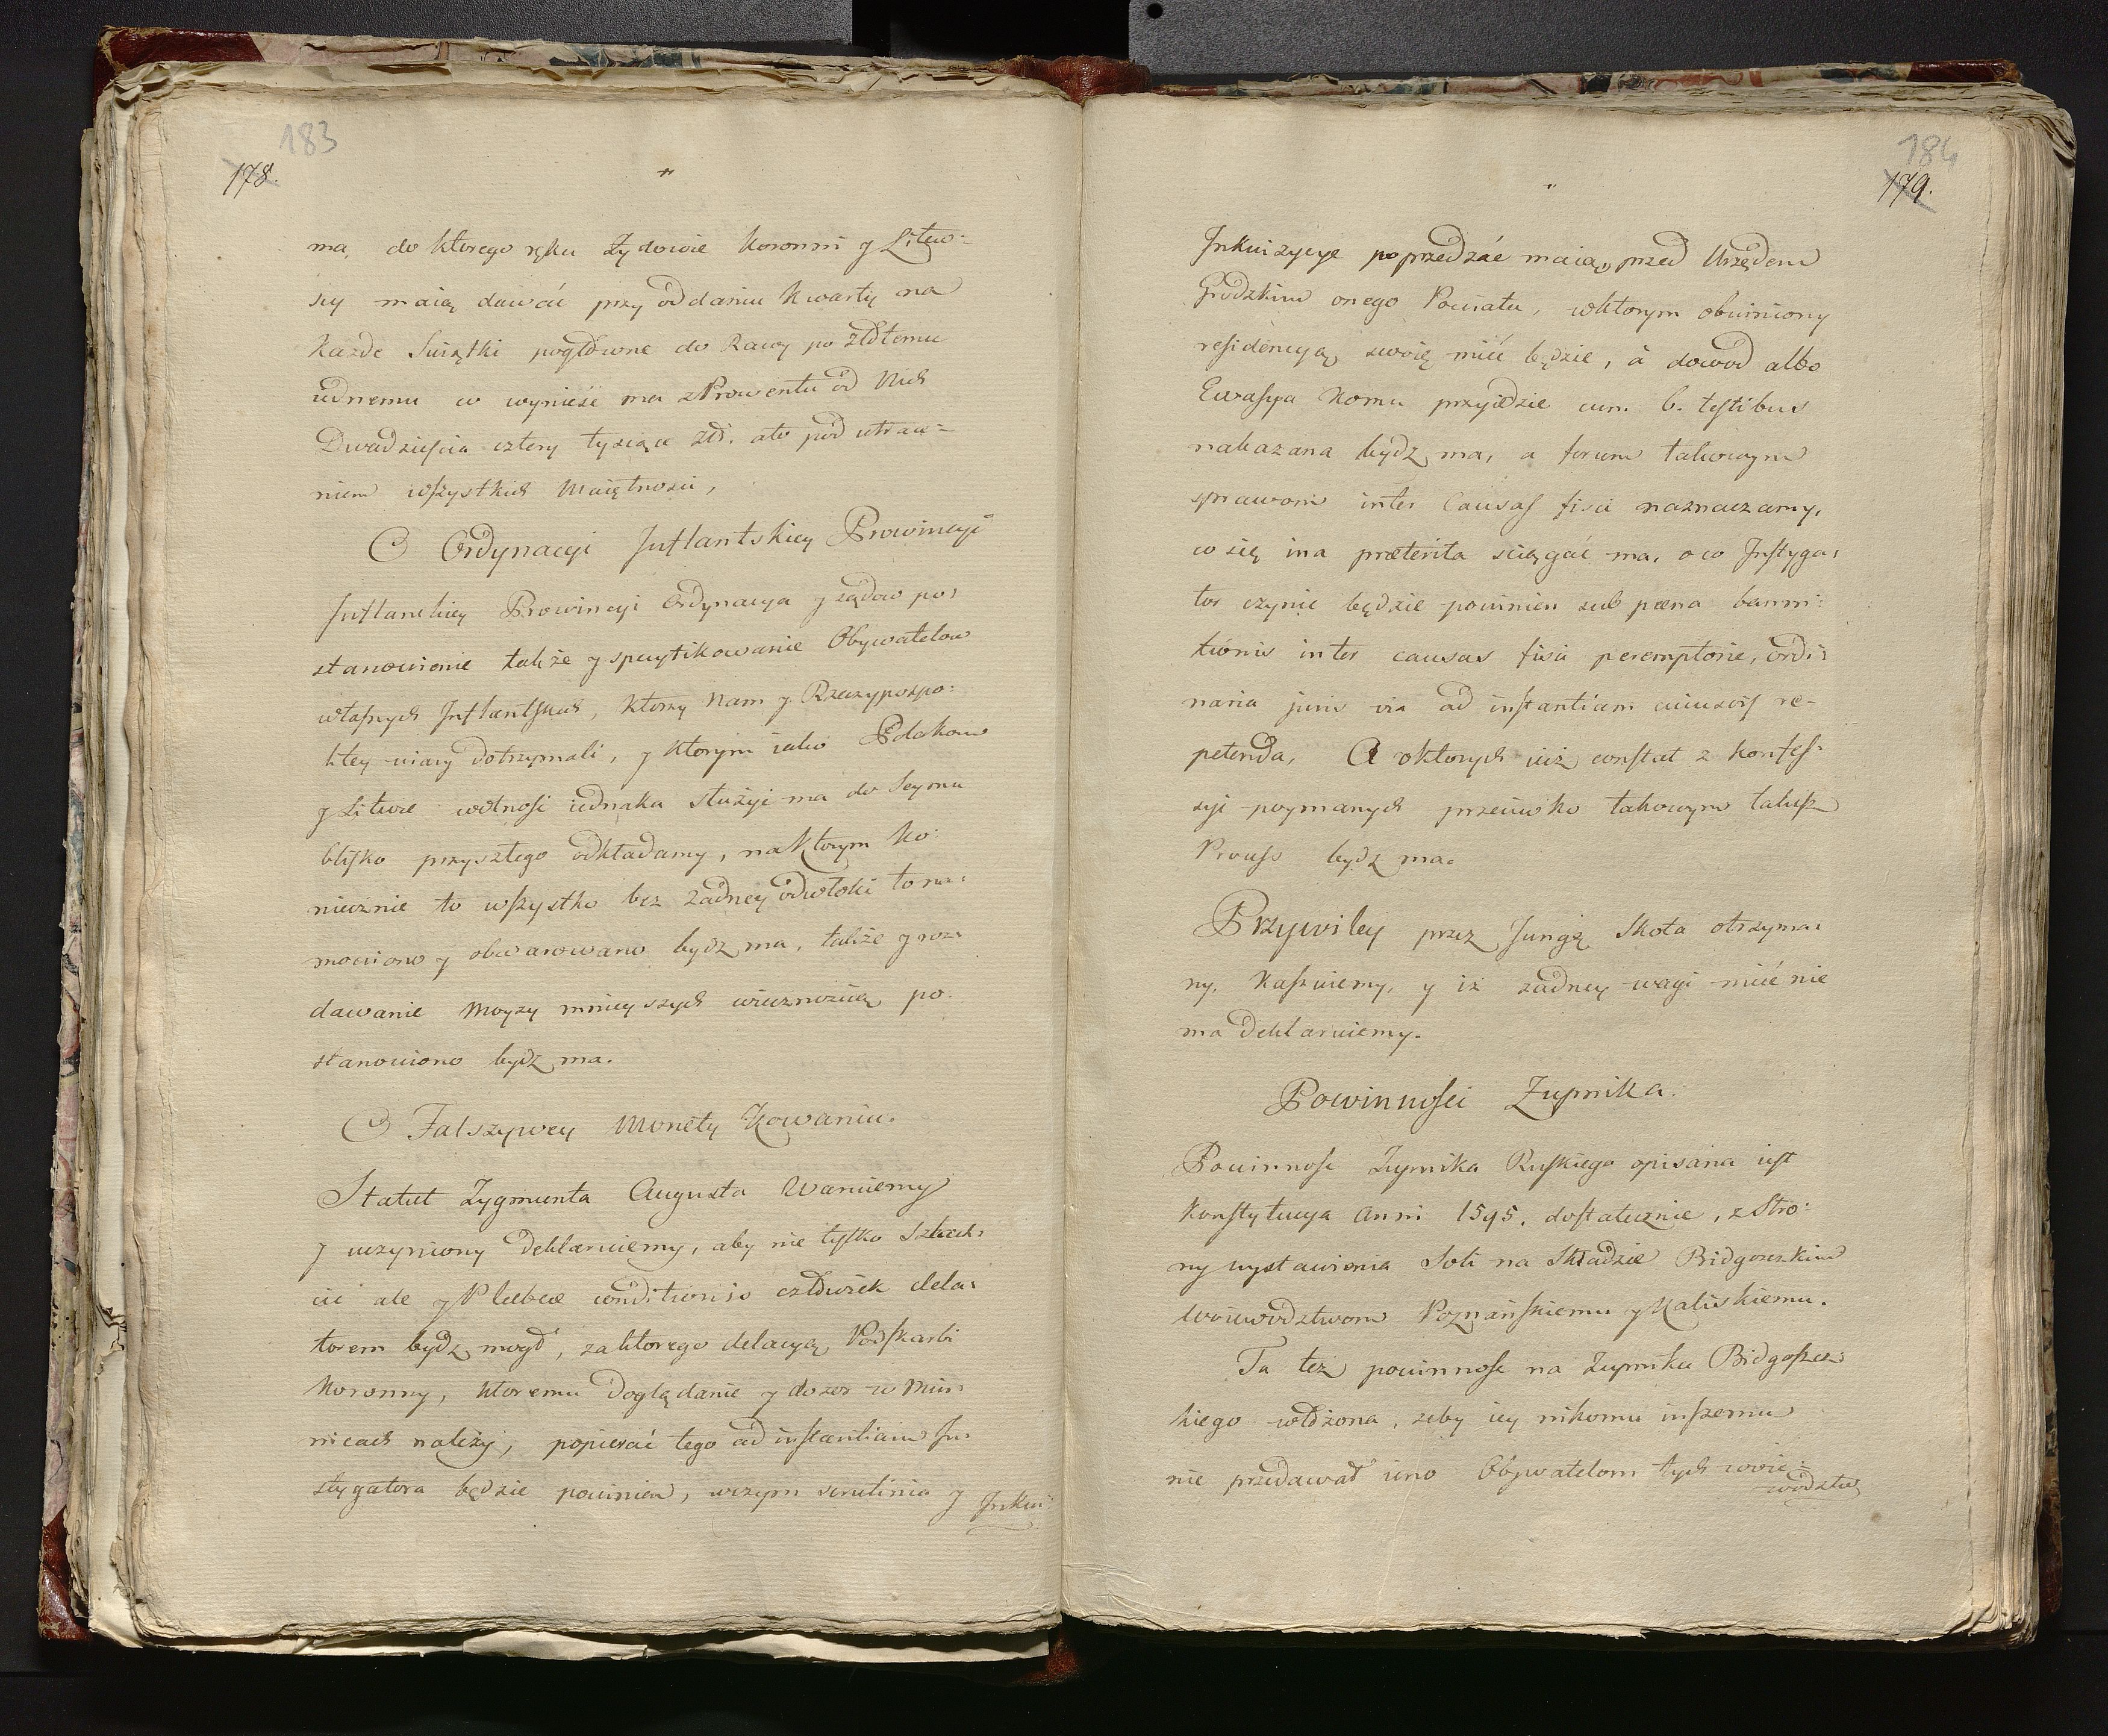 183
178.
ma, do ktorego ręku Zydowie koronni y Litew:
scy maią dawać przy oddaniu kwarty na
kazde Swiątki pogłowne do Rawy po złotemu
iednemu co wynieśe ma z Prowentu od Nich
Dwadzieścia cztery tysiące Zł. ato pod utrace=
niem wszystkich Maiętnosci,
O Ordynacyi Inflantskiey Prowincyi
Inflanckiey Prowincyi Ordynacya y sądow po:
stanowienie takze y specyfikowanie Obywatelow
własnych Inflantskich, ktorzy Nam y Rzeczypospo:
litey wiary dotrzymali, y ktorym iako Polakom
y Litwie wolnosc iednaka słuzyć ma do Seymu
blisko przyszłego odkładamy, naktorym ko:
niecznie to wszystko bez zadney odwłoki tona:
mowiono y obwarowano bydz ma, takze y roz:
dawanie Moyzy mnieyszych wiecznoscią po:
stanowiono bydz ma.
O Falszywey Monety Kowaniu.
Statut Zygmunta Augusta Waruiemy
y uczyniony deklaruiemy, aby nie tylko Szlach:
cic ale y Plebeae conditionis człowiek dela:
torem bydz mogł, zaktorego delacyą Podskarbi
Koronny, ktoremu Doglądanie y dozor w Min:
nicach nalezy, popierać tego ad instantiam In:
stygatora będzie powinien, wczym scrutinia y Inkwi:
184
179.
Inkwizycye poprzedzać maią, przed Urzędem
Grodzkim onego Powiatu, wktorym obwiniony
residencyą swoię mieć będzie, a dowod albo
Ewasya komu przyidzie cum 6. testibus
nakazana bydz ma, a forum takowym
sprawom inter Causas fisci naznaczamy,
co się in a praeterita sciągać ma, o co Instyga:
tor czynić będzie powinien sub paena banni:
tionis inter causas fisci peremptorie, ordi:
naria juris via ad instantiam cuiusvis re-
petenda, A oktorych iuz constat z Konfes:
syi poymanych przeciwko takowym takisz
Process bydz ma.
Przywiley przez Jungę Skota otrzyma:
ny, kassuiemy, y iz zadney wagi mieć nie
ma deklaruiemy.
Powinnosci Zupnika.
Powinnosc Zupnika Ruskiego opisana iest
Konstytucya Anni 1595. dostatecznie, z Stro:
ny wystawienia Soli na Składzie Bidgoskim
Woiewodztwom Poznańskiemu y Kaliskiemu.
Ta tez powinnosc na Zupnika Bidgoszcz:
kiego włozona, zeby iey nikomu inszemu
nie przedawał ieno Obywatelom tych woie:
wodztw